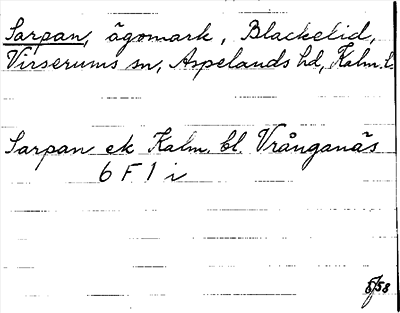 Sarpan, ägomark, Blackelid,
Virserums sn, Aspelands hd, Kalm. l.
Sarpan ek Kalm. bl. Vrånganäs
6 F 1 i
5/58